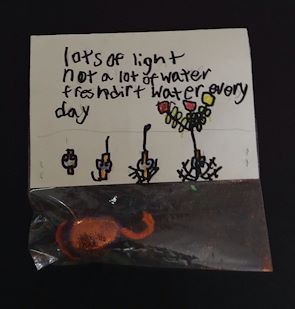 lots of light
not a lot of water
fresh dirt water every
day